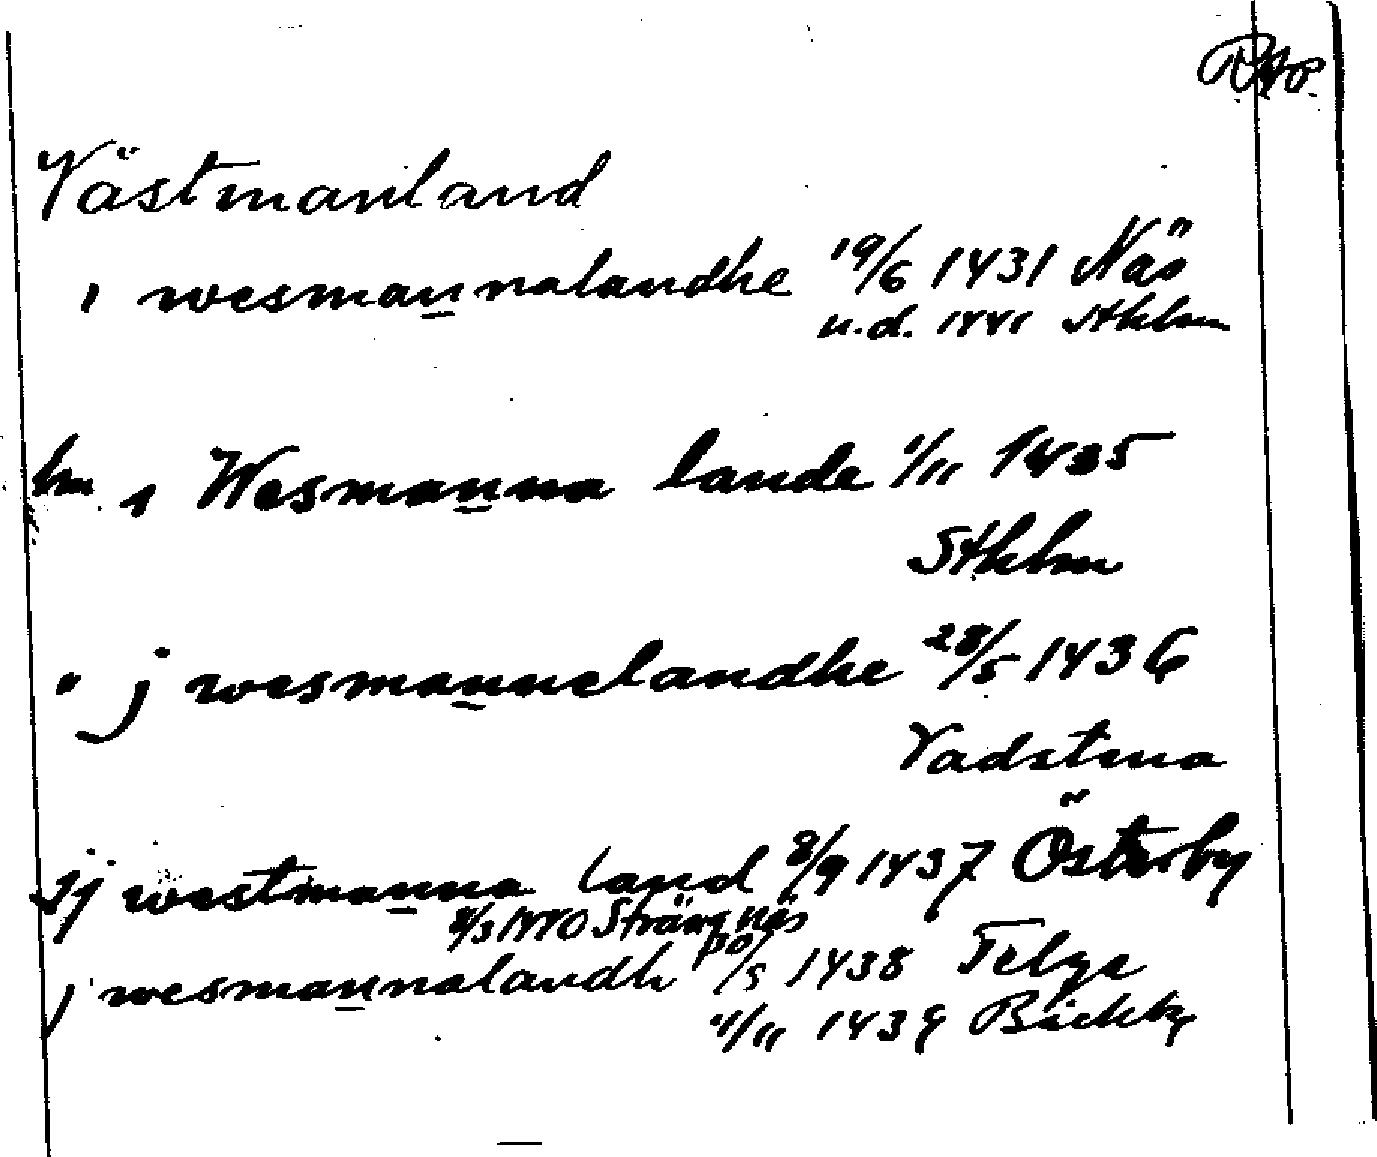 Västmanland
i wesmannalandhe 19/6 1431 Näs
u.d. 1441 Sthlm
hm i Wesmanna lande 1/11 1435
Sthlm
" j wesmannelandhe 28/5 1436
Vadstena
westmanna land 8/9 1437 Österby
8/3 1440 Strängnäs
j wesmannalandh 30/5 1438 Telge
1439